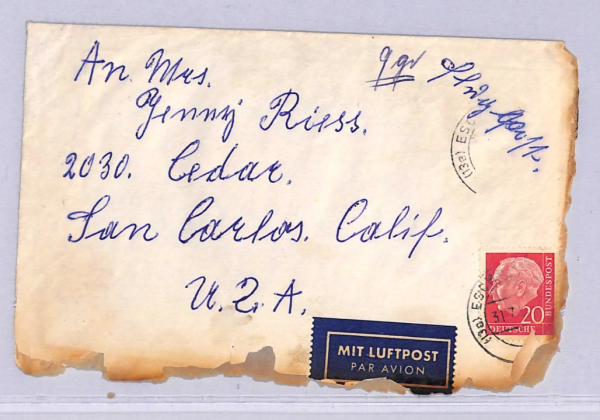 An Mrs.
9 gr
Jenny Riess.
2030. Cedar.
San Carlos. Calif.
U.S.A.
(13a) ESC
(13a) ESC
31.
20
DEUTSCHE
BUNDESPOST
MIT LUFTPOST
PAR AVION